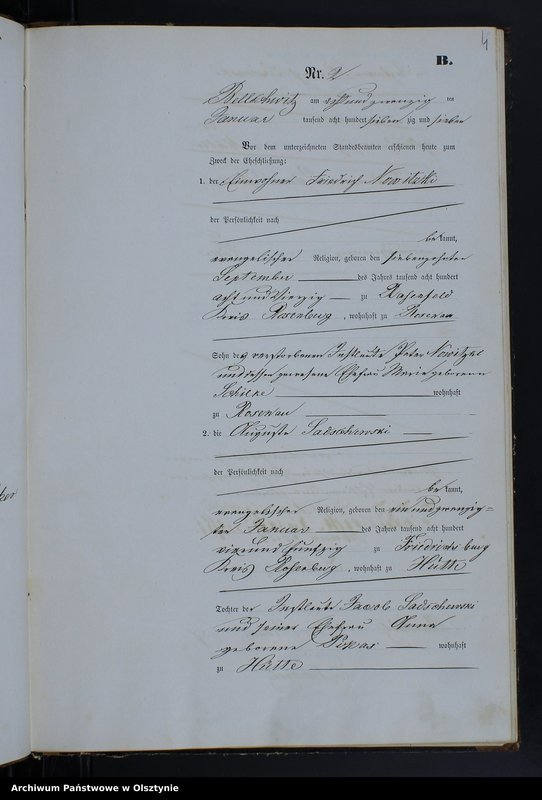 4
B.
Nr. 2
Bellschwitz am acht und zwanzig ten
Januar tausend acht hundert sieben zig und sieben
Vor dem unterzeichneten Standesbeamten erschienen heute zum
Zweck der Eheschließung:
1. der Einwohner Friedrich Nowitzki
der Persönlichkeit nach
be kannt,
evangelischer Religion, geboren den siebenzehnten
September des Jahres tausend acht hundert
acht und vierzig zu Rosenfeld
Kreis Rosenberg, wohnhaft zu Rosenau
Sohn der verstorbenen Instleute Peter Nowitzki
und dessen gewesene Ehefrau Marie geborenen
Schilke wohnhaft
zu Rosenau
2. die Auguste Sadschewski
der Persönlichkeit nach
be kannt,
evangelischer Religion, geboren den ein und zwanzig=
ten Januar des Jahres tausend acht hundert
vier und fünfzig zu Friedrichsburg
Kreis Rosenberg, wohnhaft zu Hütte
Tochter der Instleute Jacob Sadschewski
und seiner Ehefrau Anna
geborene wohnhaft
zu Hütte
Archiwum Państwowe w Olsztynie